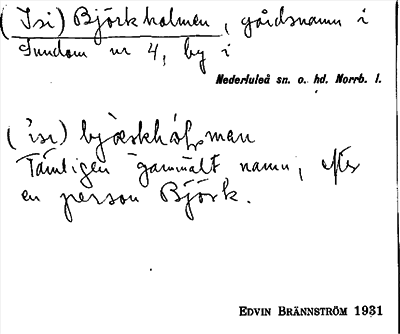 (Isi) Björkholmen, gårdsnamn i
Sundom nr 4, by i
Nederluleå sn. o. hd. Norrb. l.
('isi) bjœskhólman
Tämligen gammalt namn, efter
en person Björk.
EDVIN BRÄNNSTRÖM 1931